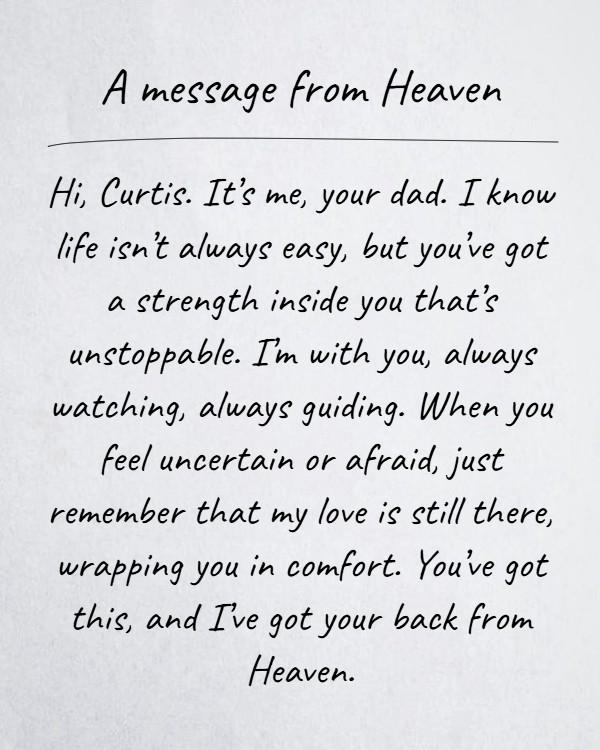 A message from Heaven
Hi, Curtis. It’s me, your dad. I know
life isn’t always easy, but you’ve got
a strength inside you that’s
unstoppable. I’m with you, always
watching, always guiding. When you
feel uncertain or afraid, just
remember that my love is still there,
wrapping you in comfort. You’ve got
this, and I’ve got your back from
Heaven.